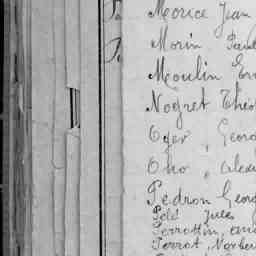 Morice Jean
Morin
Moulin
Nogret Théo
Oger, Georg
Oho, Alex
Pedron Georg
Pelé Jules
Perrottin,
Perrot, Norber